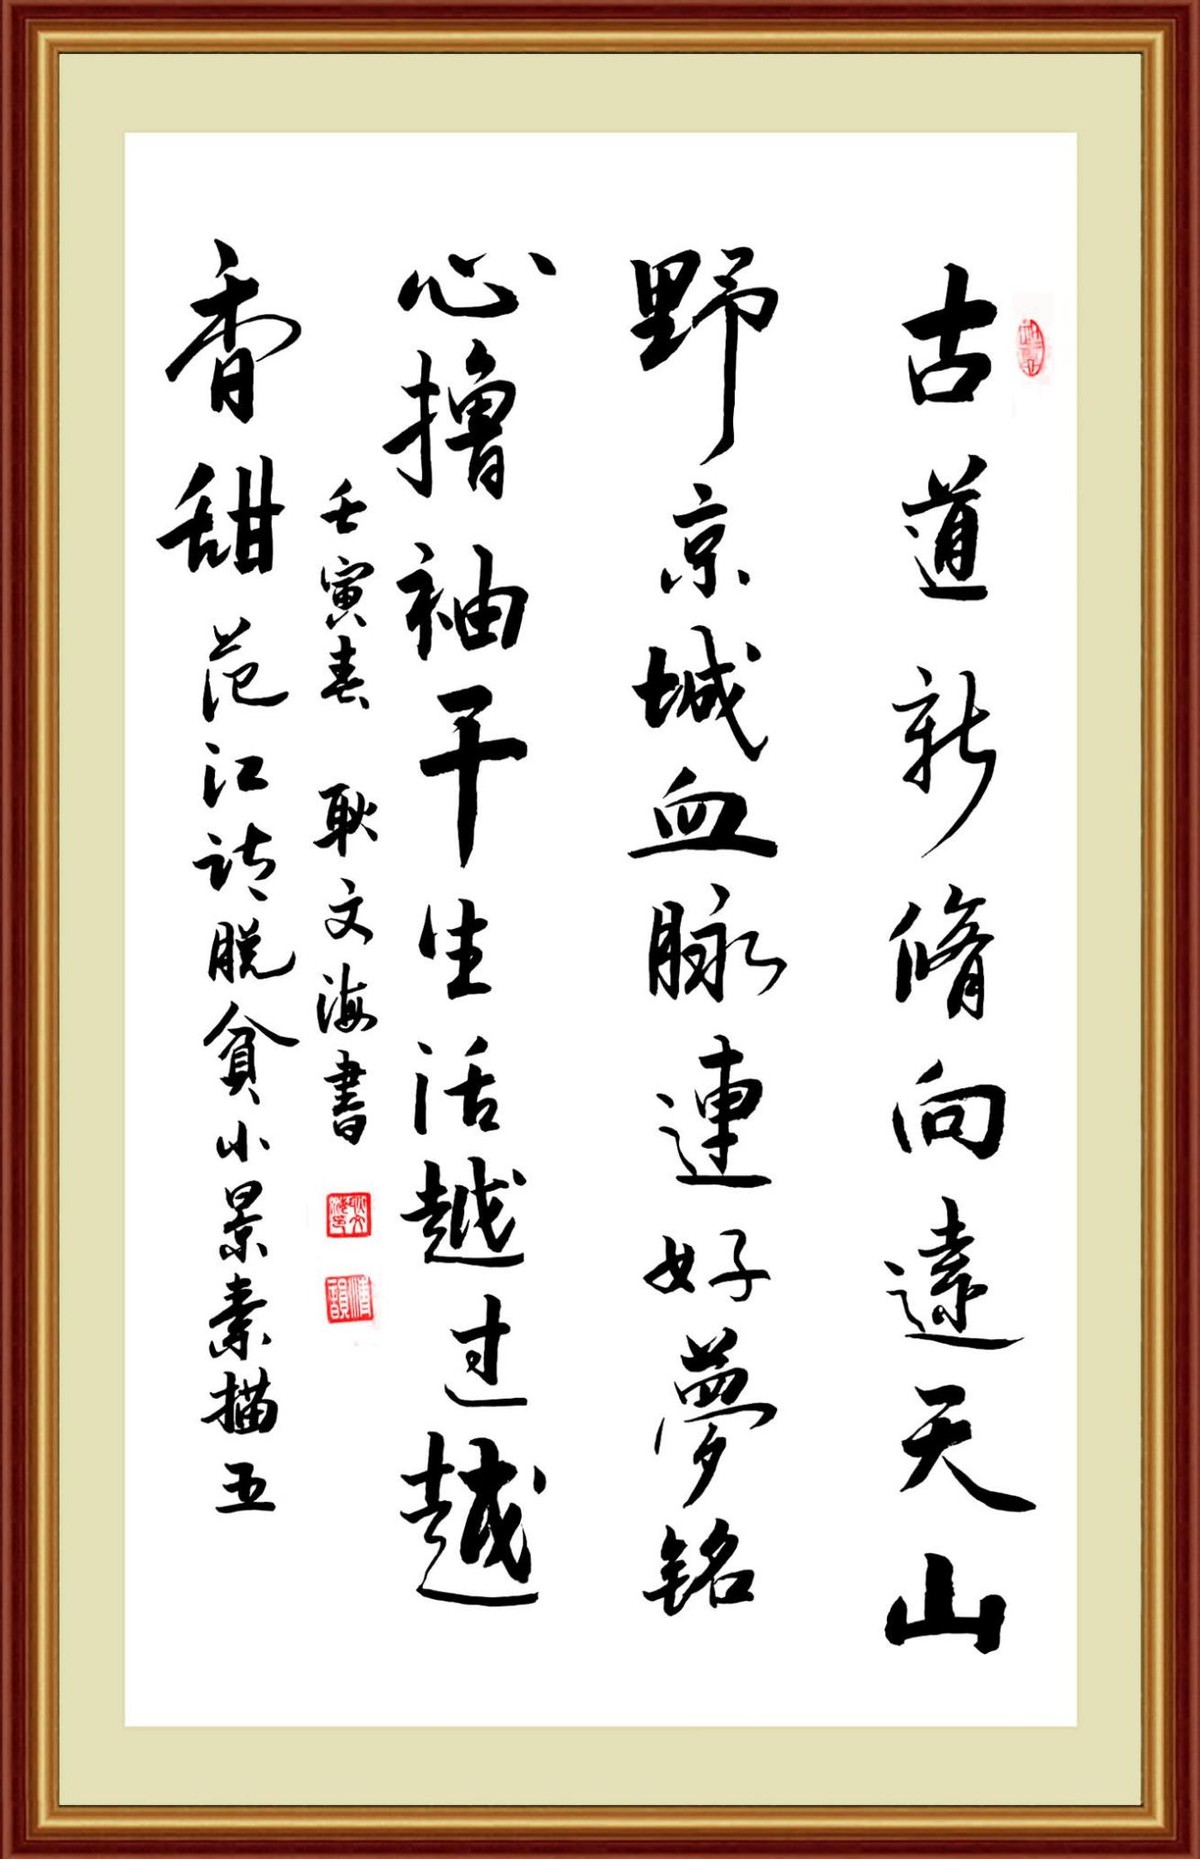 古道新脩向遠天山
野京城血脉連好夢銘
心擼袖干生活越过越
香甜范江诗脱貧小景素描五
壬寅春 耿文海書